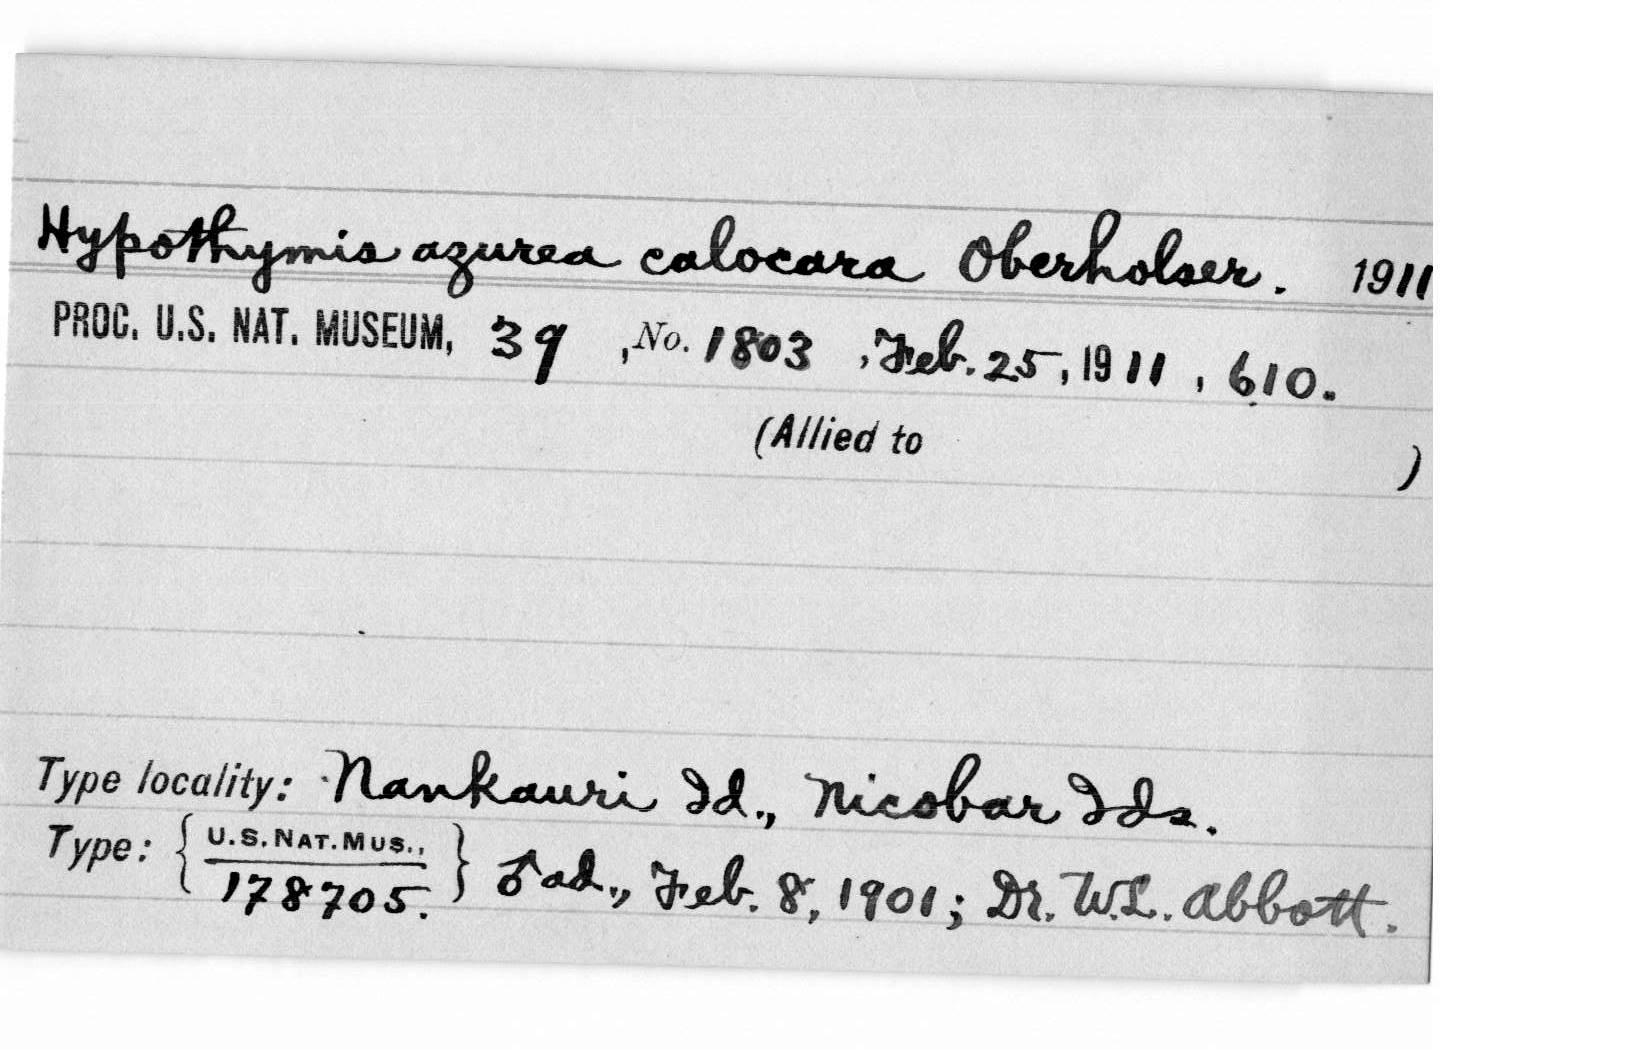 Hypothymis azurea calocara Oberholser. 1911
PROC. U.S. NAT. MUSEUM, 39, No. 1803, Feb. 25, 1911, 610.
(Allied to )
Type locality: Nankauri Id., Nicobar Ids.
Type: { U.S. NAT. MUS., 178705. } ♂ ad., Feb. 8, 1901; Dr. W.L. Abbott.